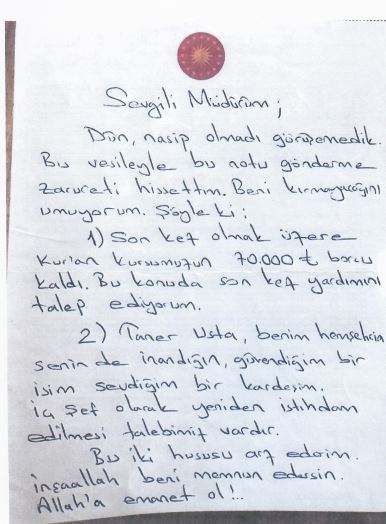 Sevgili Müdürüm;
Dün, nasip olmadı görüşemedik.
Bu vesileyle bu notu gönderme
zarureti hissettim. Beni kırmayacağını
umuyorum. Şöyle ki:
1) Son kez olmak üzere
Kur'an Kursumuzun 70.000 ₺ borcu
kaldı. Bu konuda son kez yardımını
talep ediyorum.
2) Taner Usta, benim hemşehrim
senin de inandığın, güvendiğim bir
isim sevdiğim bir kardeşim.
İç Şef olarak yeniden istihdam
edilmesi talebimiz vardır.
Bu iki hususu arz ederim.
İnşaallah beni memnun edersin.
Allah'a emanet ol!..